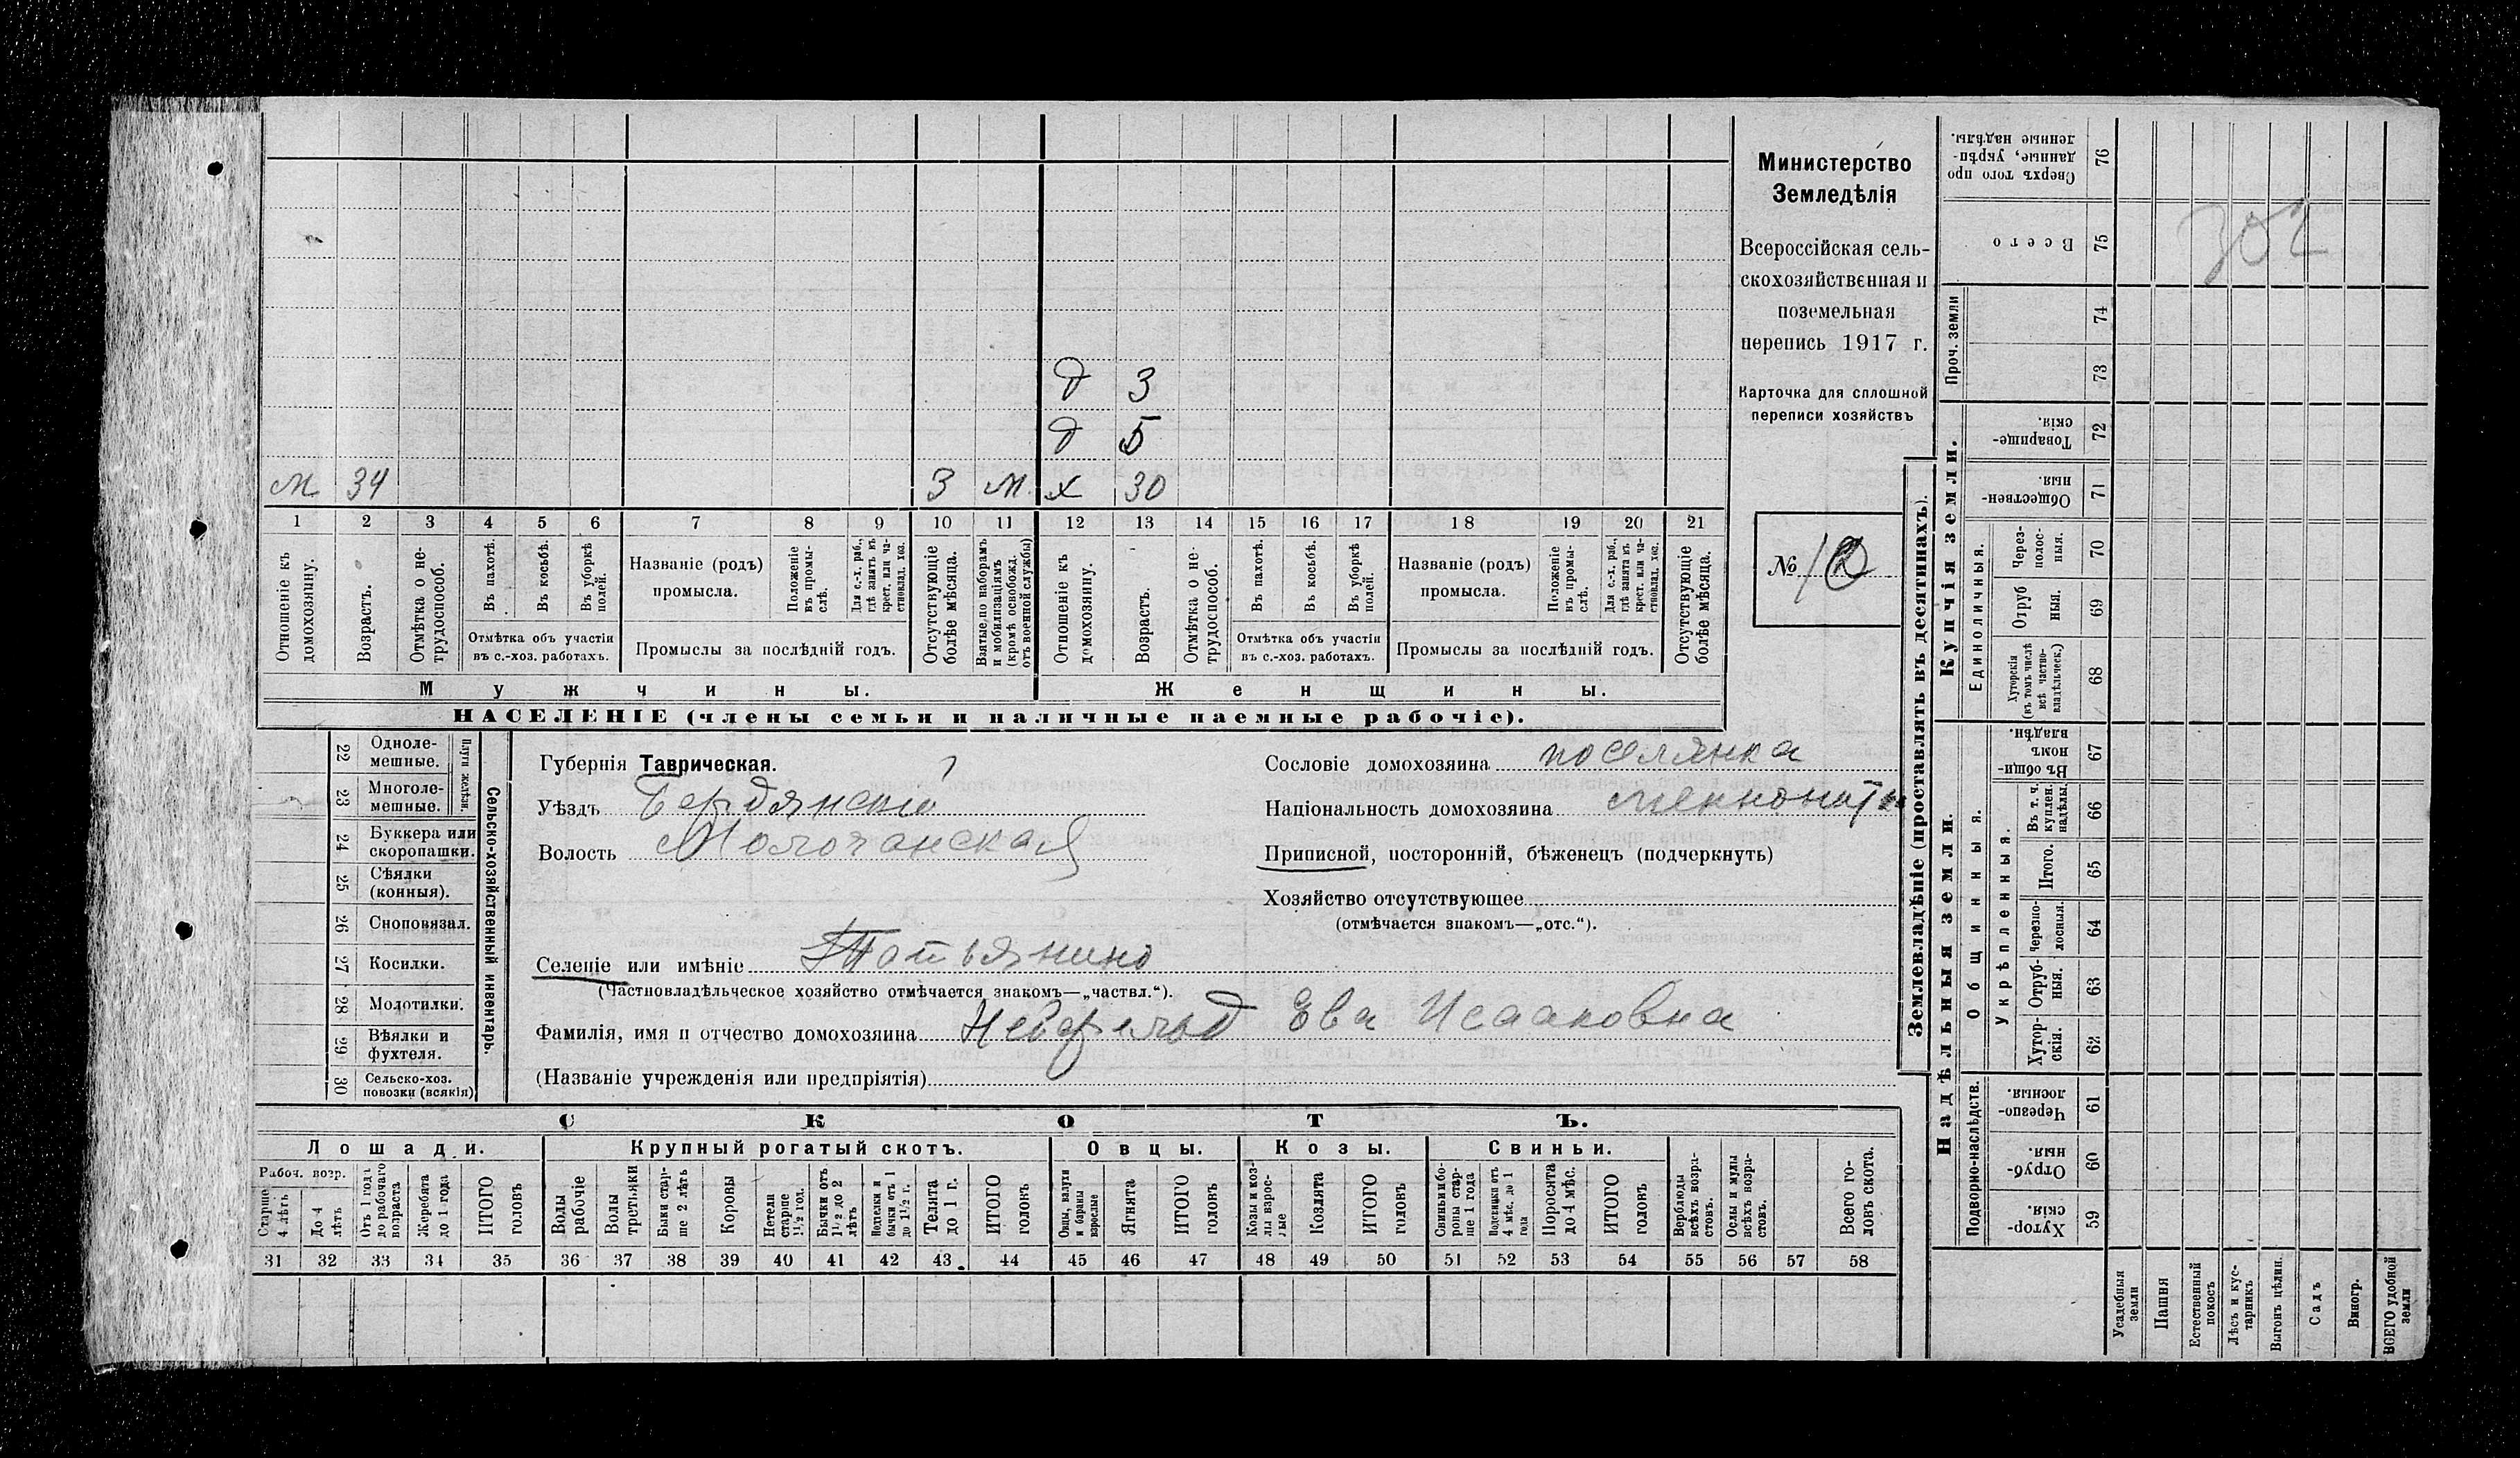 Министерство
Земледѣлія
Всероссійская сель-
скохозяйственная и
поземельная
перепись 1917 г.
Карточка для сплошной
переписи хозяйствъ
№ 10
д 3
д 5
м 34 3 м. х 30
1 2 3 4 5 6 7 8 9 10 11 12 13 14 15 16 17 18 19 20 21
Отношеніе къ домохозяину.
Возрастъ.
Отмѣтка о не-трудоспособ.
Въ пахотѣ.
Въ косьбѣ.
Въ уборкѣ полей.
Отмѣтка объ участіи въ с.-хоз. работахъ.
Названіе (родъ) промысла.
Положеніе въ промы-слѣ.
Для с.-х. раб., гдѣ занятъ въ крест. или ча-стновлад. хоз.
Промыслы за послѣдній годъ.
Отсутствующіе болѣе мѣсяца.
Взятые по наборамъ и мобилизаціямъ (кромѣ освобожд. отъ военной службы)
Отношеніе къ домохозяину.
Возрастъ.
Отмѣтка о не-трудоспособ.
Въ пахотѣ.
Въ косьбѣ.
Въ уборкѣ полей.
Отмѣтка объ участіи въ с.-хоз. работахъ.
Названіе (родъ) промысла.
Положеніе въ промы-слѣ.
Для с.-х. раб., гдѣ занята въ крест. или ча-стновлад. хоз.
Промыслы за послѣдній годъ.
Отсутствующіе болѣе мѣсяца.
Мужчины. Женщины.
НАСЕЛЕНІЕ (члены семьи и наличные наемные рабочіе).
Сельско-хозяйственный инвентарь.
Плуги желѣзн.
22 Одноле-мешные.
23 Многоле-мешные.
24 Буккера или скоропашки.
25 Сѣялки (конныя).
26 Сноповязал.
27 Косилки.
28 Молотилки.
29 Вѣялки и фухтеля.
30 Сельско-хоз. повозки (всякія)
Губернія Таврическая.
Уѣздъ Бердянскій
Волость Молочанская
Сословіе домохозяина поселянка
Національность домохозяина меннонитк
Приписной, посторонній, бѣженецъ (подчеркнуть)
Хозяйство отсутствующее
(отмѣчается знакомъ—„отс.“).
Селеніе или имѣніе Татьянино
(Частновладѣльческое хозяйство отмѣчается знакомъ—„частвл.“).
Фамилія, имя и отчество домохозяина Нейфельд Ева Исааковна
(Названіе учрежденія или предпріятія)
СКОТЪ.
Лошади. Крупный рогатый скотъ. Овцы. Козы. Свиньи.
Рабоч. возр.
Старше 4 лѣтъ
До 4 лѣтъ
Отъ 1 года до рабочаго возраста
Жеребята до 1 года
ИТОГО головъ
Волы рабочіе
Волы третьяки
Быки стар-ше 2 лѣтъ
Коровы
Нетели старше 1½ год.
Бычки отъ 1½ до 2 лѣтъ
Подтелки и бычки отъ 1 до 1½ г.
Телята до 1 г.
ИТОГО головъ
Овцы, валухи и бараны взрослые
Ягнята
ИТОГО головъ
Козы и коз-лы взрос-лые
Козлята
ИТОГО головъ
Свиньи и бо-ровы стар-ше 1 года
Подсвинки отъ 4 мѣс. до 1 года
Поросята до 4 мѣс.
ИТОГО головъ
Верблюды всѣхъ возра-стовъ.
Ослы и мулы всѣхъ возра-стовъ.
Всего го-ловъ скота.
31 32 33 34 35 36 37 38 39 40 41 42 43 44 45 46 47 48 49 50 51 52 53 54 55 56 57 58
Землевладѣніе (проставлять въ десятинахъ).
Купчія земли.
Надѣльныя земли.
Сверхъ того про данные, укрѣп-ленные надѣлы. 76
Всего 75
302
Проч. земли 74 73
Товарище-скія. 72
Обществен-ныя. 71
Единоличныя.
Через-полос-ныя. 70
Отруб ныя. 69
Хуторскія (въ томъ числѣ всѣ частно-владѣльческ.) 68
Общинныя.
Въ общи-номъ владѣн. 67
Укрѣпленныя.
Въ т. ч. куплен. надѣлы. 66
Итого. 65
Черезпо-лосныя. 64
Отруб-ныя. 63
Хутор-скія. 62
Подворно-наслѣдств.
Черезпо-лосныя. 61
Отруб-ныя. 60
Хутор-скія. 59
Усадебныя земли
Пашня
Естественный покосъ
Лѣсъ и кус-тарникъ
Выгонъ цѣлин.
Садъ
Виногр.
ВСЕГО удобной земли